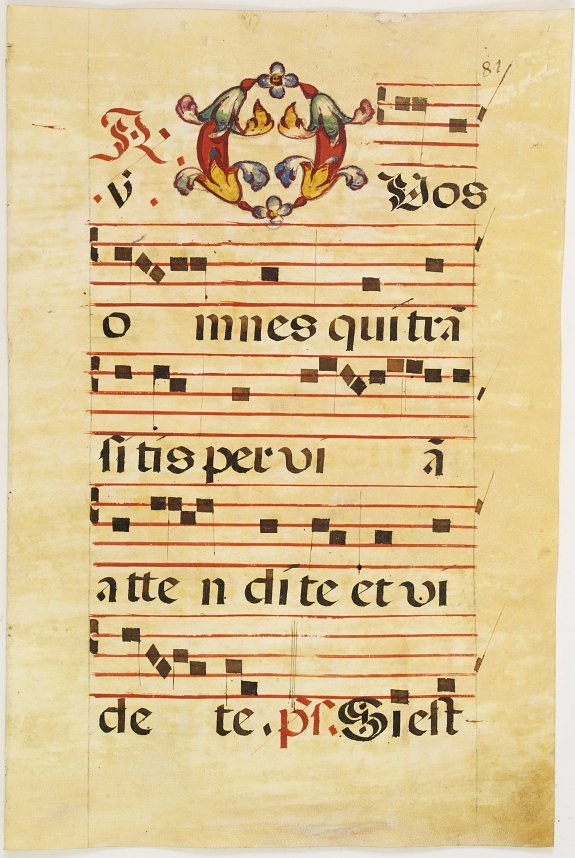 81
R. O Vos
v.
o mnes qui trã
sitis per vi ã
atte n dite et vi
de te. ps. Si est-